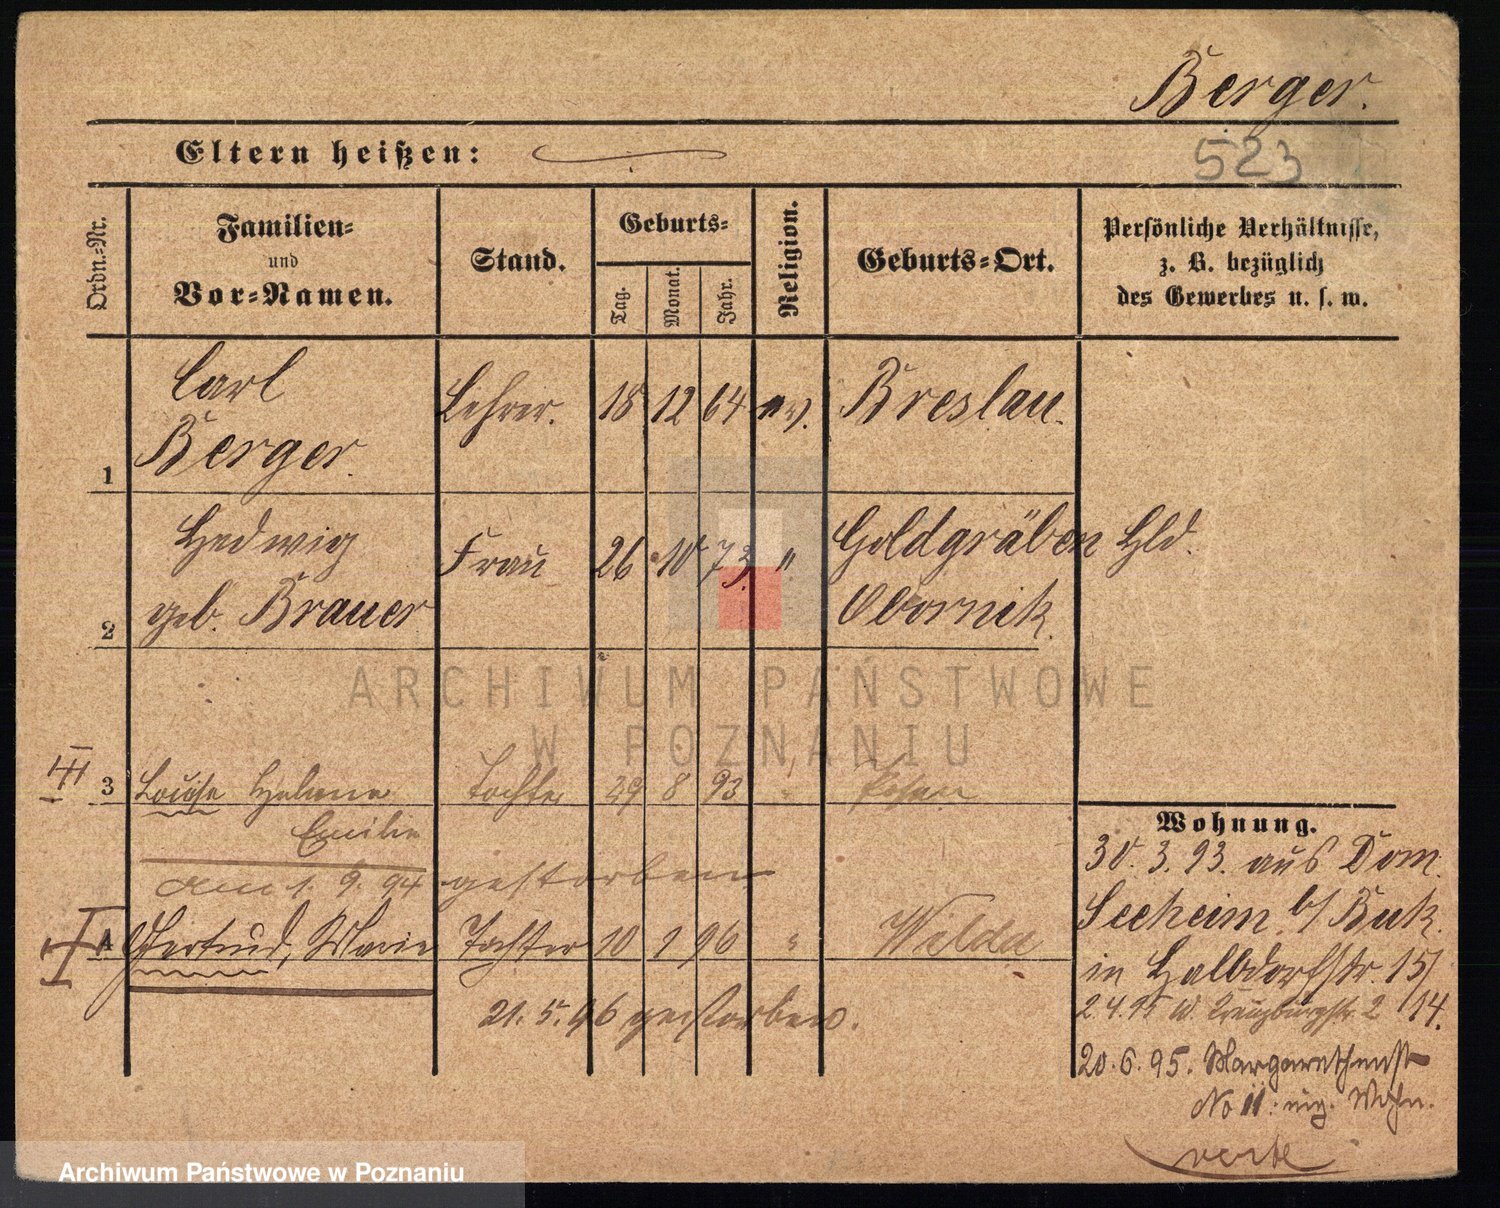 Berger.
Eltern heißen:
523
Ordn.-Nr.
Familien-
und
Vor-Namen.
Stand.
Geburts-
Tag.
Monat.
Jahr.
Religion.
Geburts-Ort.
Persönliche Verhältnisse,
z. B. bezüglich
des Gewerbes u. s. w.
Carl
Berger.
Lehrer. 18 12 64 ev. Breslau.
1
Hedwig
geb. Brauer
Frau 26 10 73. " Goldgräben Hld.
Obornik.
2
3 Louise Helene Tochter 29 8 93 " Posen
Emilie
am 1. 9. 94 gestorben
4 Gertrud, Marie Tochter 10 1 96 " Wilda
21. 5. 96 gestorben.
Wohnung.
30. 3. 93. aus Dom.
Seeheim b/ Buk.
in Halbdorfstr. 15/
2. 4. 95 W. Kreuzburgstr. 2 14.
20. 6. 95. Margarethenst
No 11. eig. Wohn.
verte
ARCHIWUM PAŃSTWOWE
W POZNANIU
Archiwum Państwowe w Poznaniu